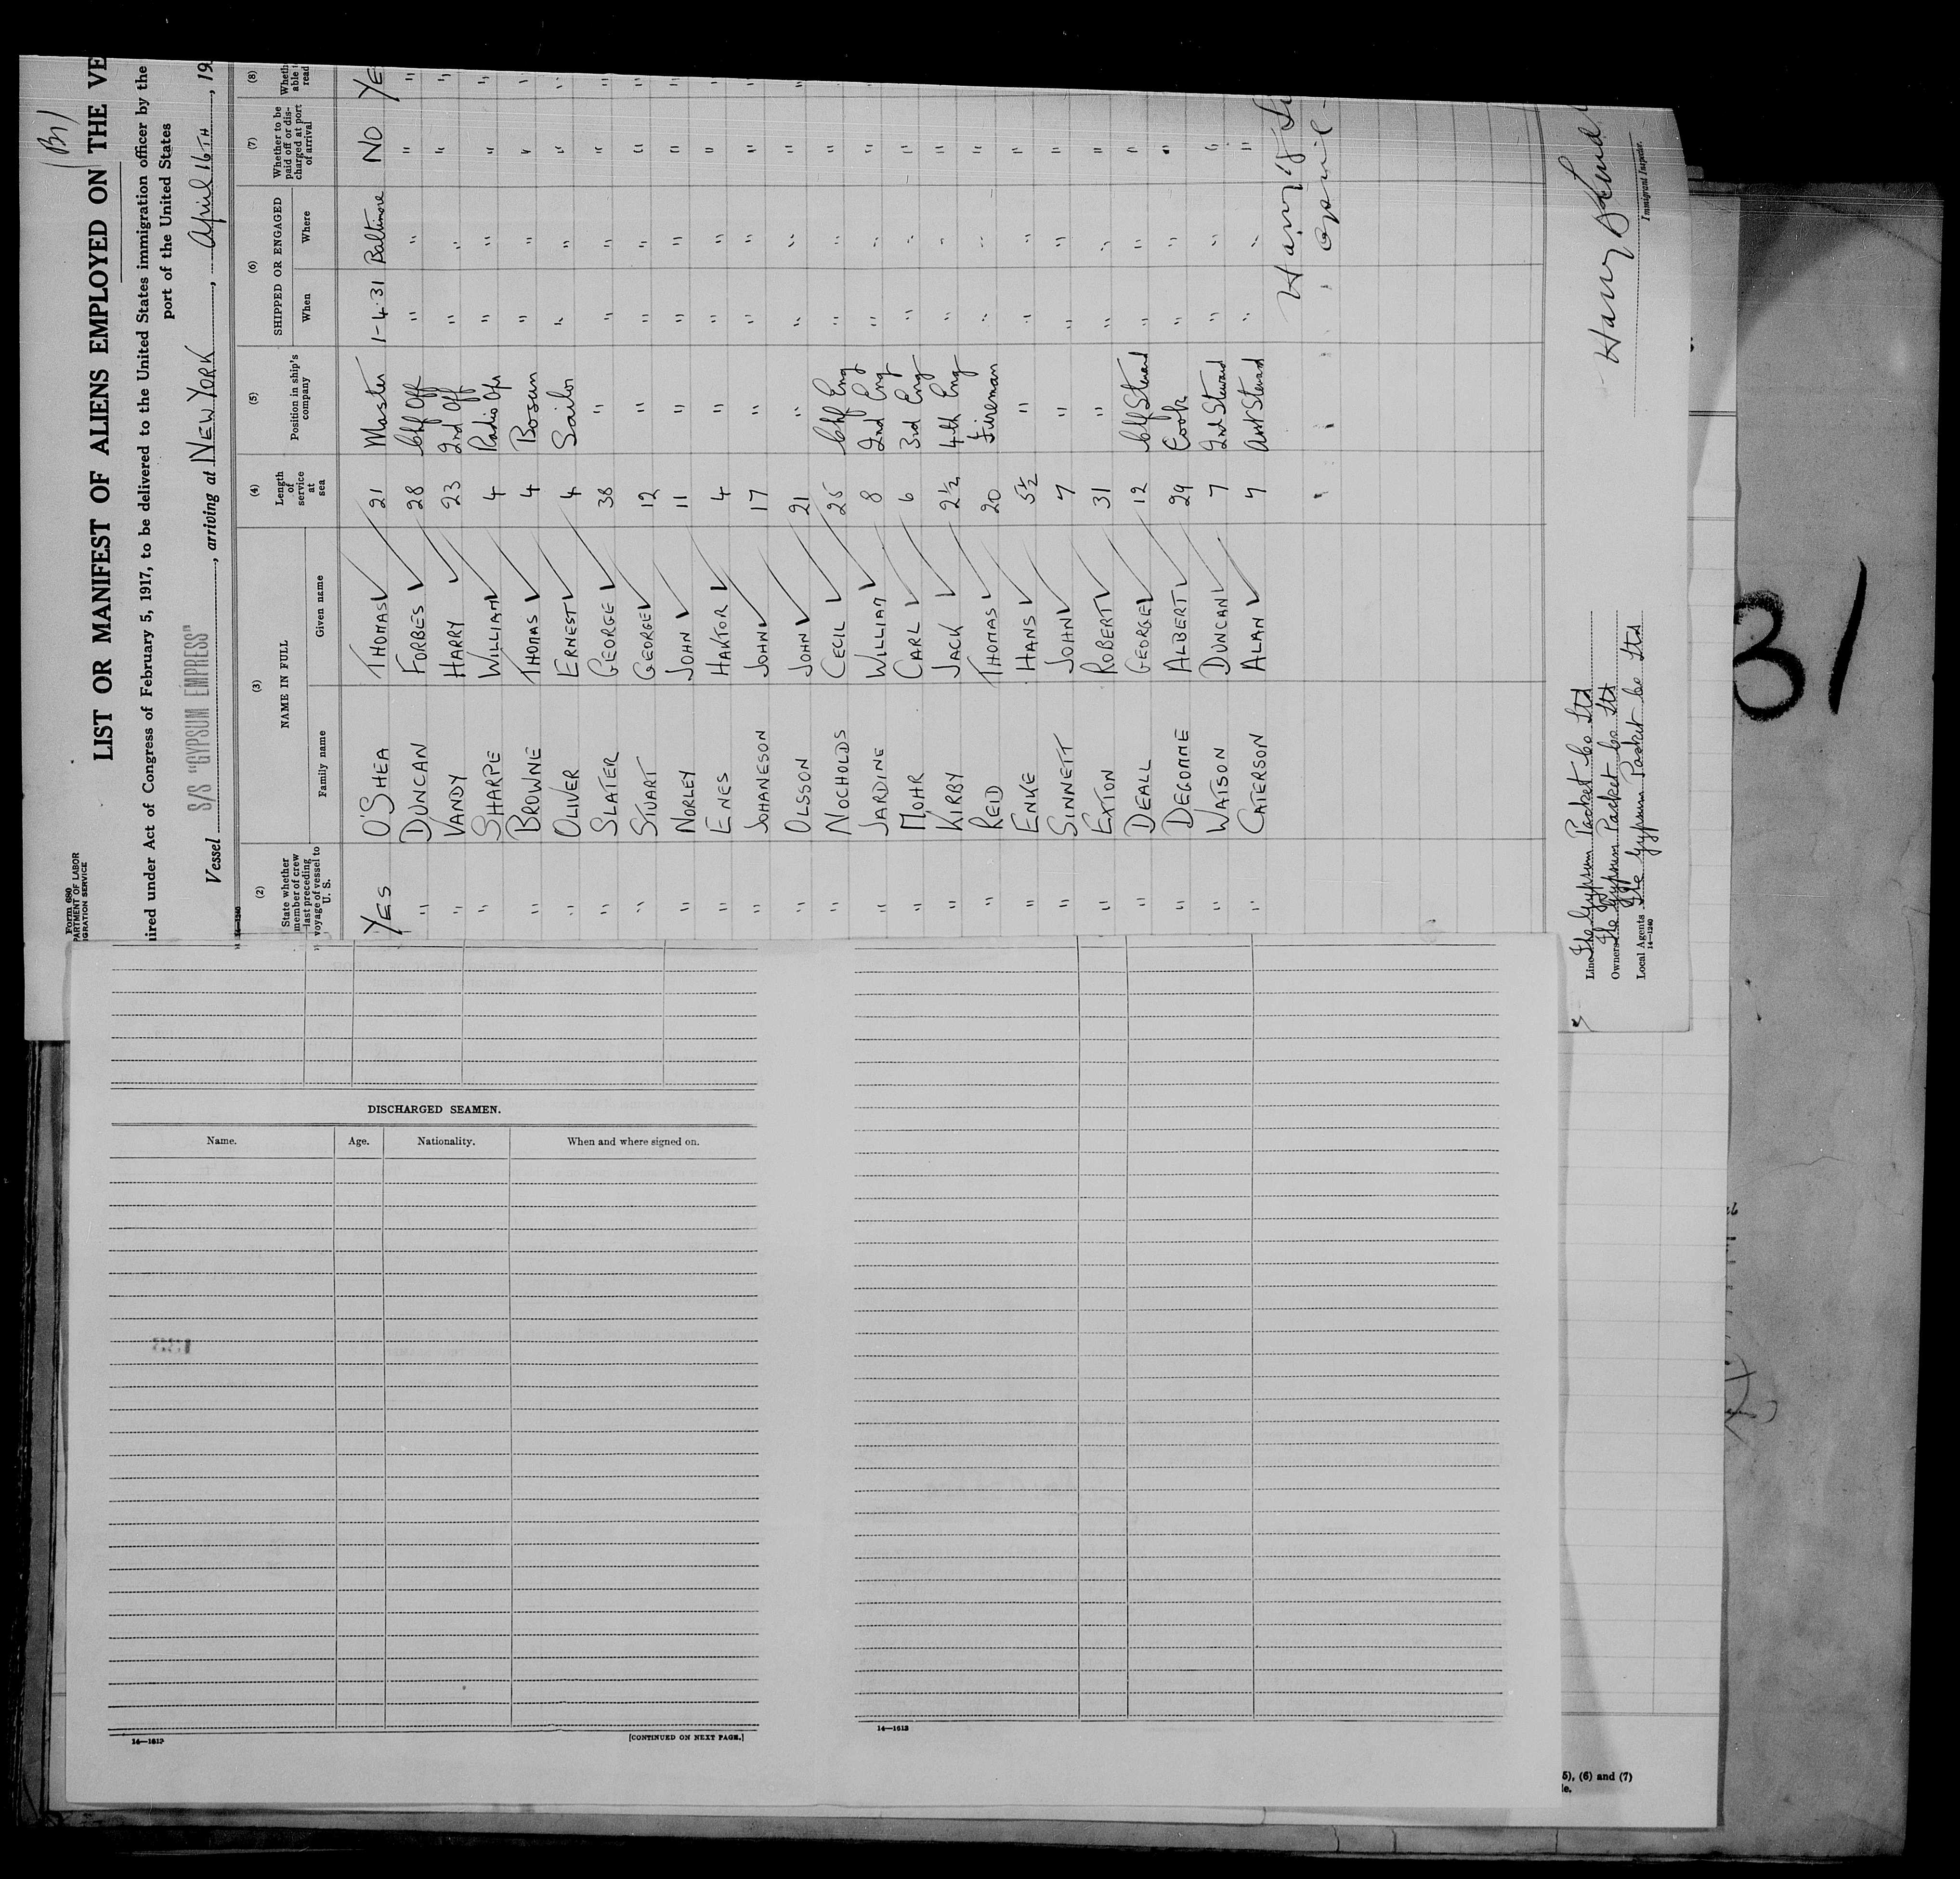 (Br)
Form 680
LIST OR MANIFEST OF ALIENS EMPLOYED ON THE VE
ired under Act of Congress of February 5, 1917, to be delivered to the United States immigration officer by the
port of the United States
Vessel S/S "GYPSUM EMPRESS", arriving at NEW YORK, April 16TH, 19
(2) (3) (4) (5) (6) (7) (8)
State whether member of crew last preceding voyage of vessel to U. S. NAME IN FULL Length of service at sea Position in ship's company SHIPPED OR ENGAGED Whether to be paid off or discharged at port of arrival
Family name Given name When Where
YES O'SHEA THOMAS 21 Master 1-4-31 Baltimore NO YE
" DUNCAN FORBES 28 Chf Off " " " "
" VANDY HARRY 23 2nd Off " " " "
" SHARPE WILLIAM 4 Radio Opr " " " "
" BROWNE THOMAS 4 Bosun " " " "
" OLIVER ERNEST 4 Sailor " " " "
" SLATER GEORGE 38 " " " " "
" STUART GEORGE 12 " " " " "
" NORLEY JOHN 11 " " " " "
" ENES HAKTOR 4 " " " " "
" JOHANESON JOHN 17 " " " " "
" OLSSON JOHN 21 " " " " "
" NOCHOLDS CECIL 25 Chf Eng " " " "
" JARDINE WILLIAM 8 2nd Eng " " " "
" MOHR CARL 6 3rd Eng " " "
" KIRBY JACK 2½ 4th Eng " " "
" REID THOMAS 20 Fireman " " "
" ENKE HANS 5½ " " " "
" SINNETT JOHN 7 " " " "
" EXTON ROBERT 31 " " " "
" DEALL GEORGE 12 Chf Steward " " "
" DEGOMME ALBERT 29 Cook " " "
" WATSON DUNCAN 7 2nd Steward " " "
" CATERSON ALAN 7 Asst Steward " " "
Line The Gypsum Packet Co Ltd
Owners The Gypsum Packet Co Ltd
Local Agents The Gypsum Packet Co Ltd
14—1240
Harry
Immigrant Inspector.
DISCHARGED SEAMEN.
Name. Age. Nationality. When and where signed on.
14—1613
[CONTINUED ON NEXT PAGE.]
14—1613
5), (6) and (7)
le.
31